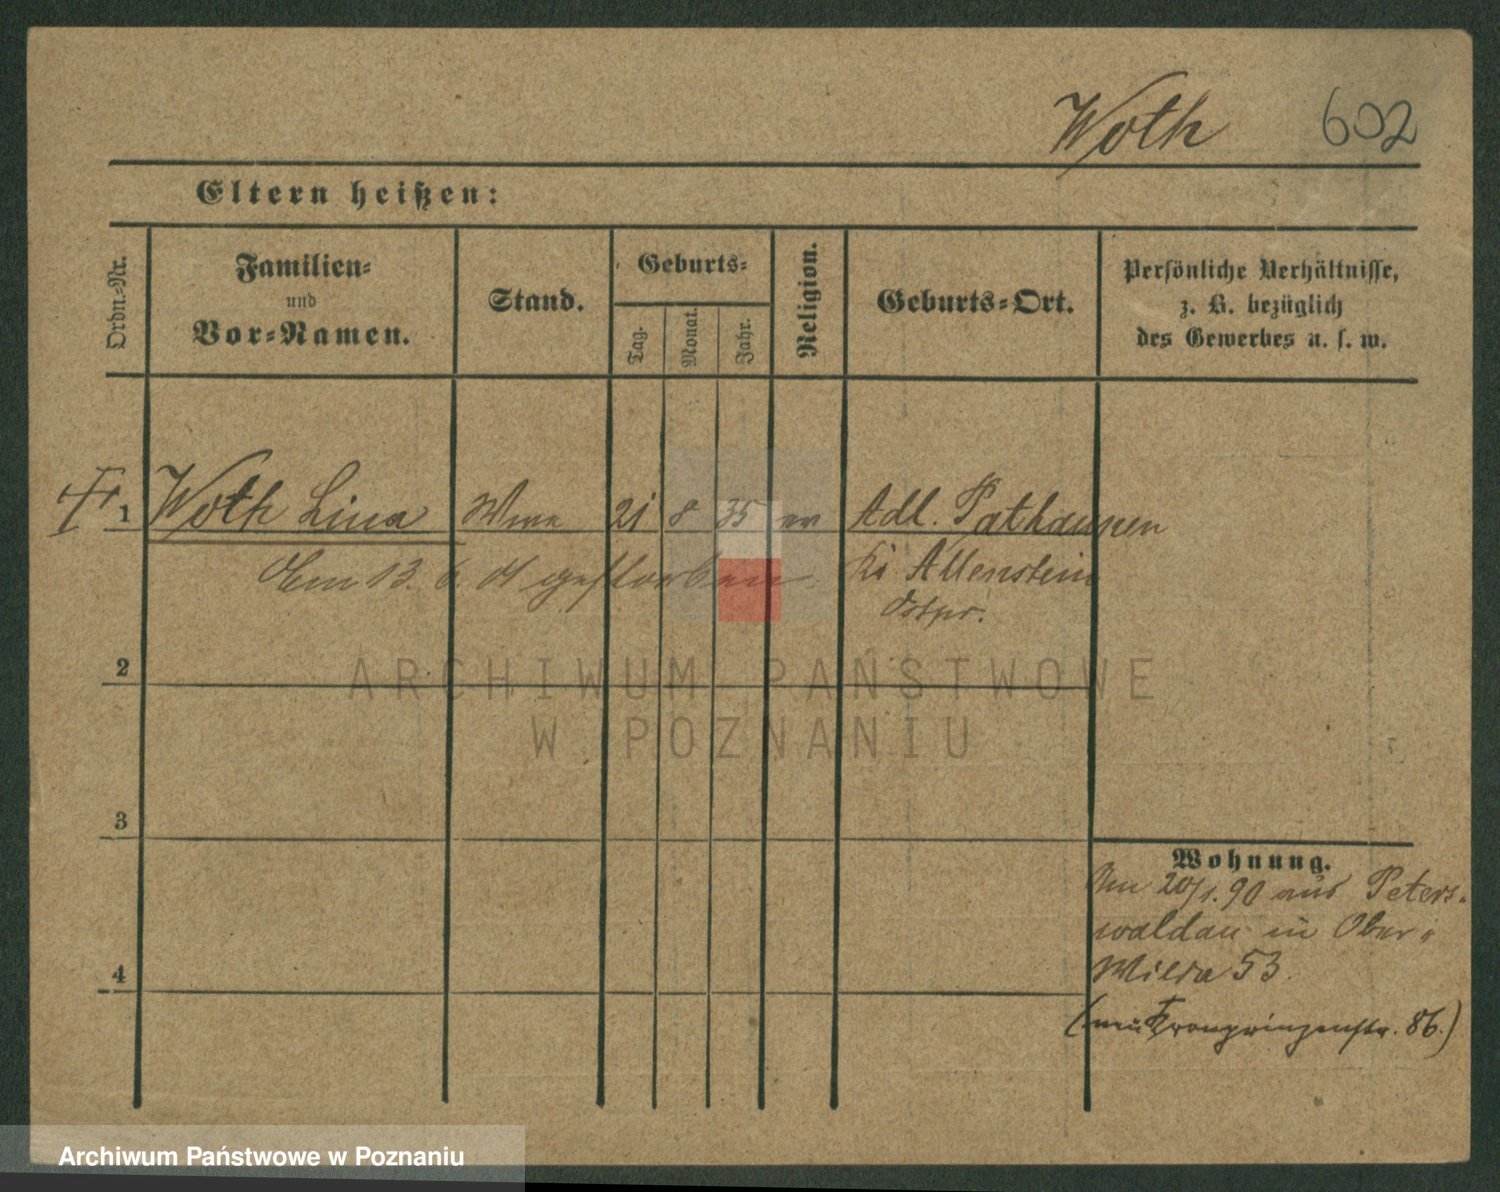 Woth 602
Eltern heißen:
Ordn.-Nr.
Familien-
und
Vor-Namen.
Stand.
Geburts-
Tag.
Monat.
Jahr.
Religion.
Geburts-Ort.
Persönliche Verhältnisse,
z. B. bezüglich
des Gewerbes u. s. w.
1 Woth Lina Wwe 21 8 35 ev Adl. Pathaunen
Am 13. 6. 01 gestorben. Kr Allenstein
Ostpr.
2
ARCHIWUM PAŃSTWOWE
W POZNANIU
3
Wohnung.
Am 20/1. 90 aus Peters-
waldau in Ober-
4 Wilda 53.
(neu Kronprinzenstr. 86.)
Archiwum Państwowe w Poznaniu